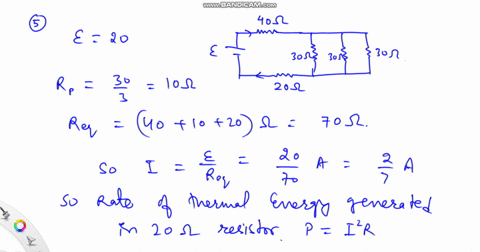 WWW.BANDICAM.COM
⑤
ε = 20
40Ω
ε
30Ω 30Ω 30Ω
20Ω
Rp = 30/3 = 10Ω
Req = (40 + 10 + 20) Ω = 70Ω.
So I = ε/Req = 20/70 A = 2/7 A
So Rate of Thermal Energy generated
in 20Ω resistor. P = I²R